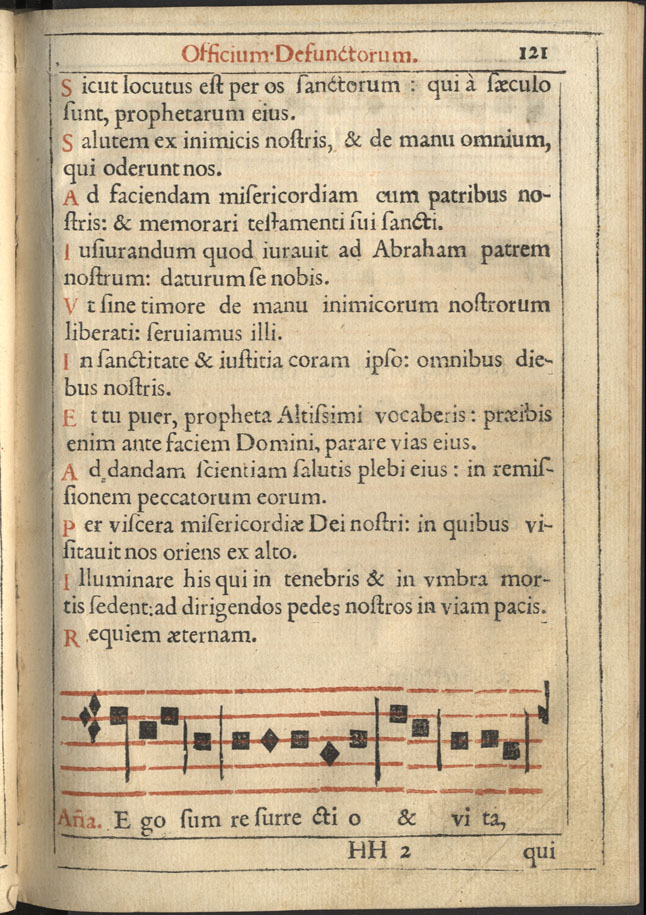 Officium·Defunctorum. 121
S icut locutus eſt per os ſanctorum : qui à ſæculo
ſunt, prophetarum eius.
S alutem ex inimicis noſtris, & de manu omnium,
qui oderunt nos.
A d faciendam miſericordiam cum patribus no-
ſtris: & memorari teſtamenti ſui ſancti.
I uſiurandum quod iurauit ad Abraham patrem
noſtrum: daturum ſe nobis.
V t ſine timore de manu inimicorum noſtrorum
liberati: ſeruiamus illi.
I n ſanctitate & iuſtitia coram ipſo: omnibus die-
bus noſtris.
E t tu puer, propheta Altiſsimi vocaberis : præibis
enim ante faciem Domini, parare vias eius.
A d dandam ſcientiam ſalutis plebi eius : in remiſ-
ſionem peccatorum eorum.
P er viſcera miſericordiæ Dei noſtri: in quibus vi-
ſitauit nos oriens ex alto.
I lluminare his qui in tenebris & in vmbra mor-
tis ſedent: ad dirigendos pedes noſtros in viam pacis.
R equiem æternam.
Aña. E go ſum re ſurre cti o & vi ta,
HH 2 qui